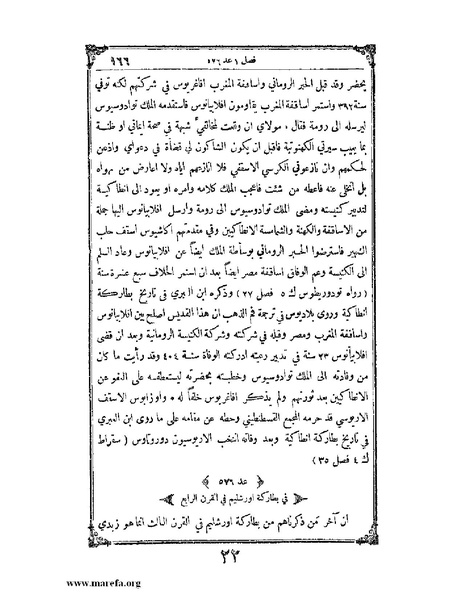 فصل ١ عد ٥٧٦
٩٦٦
يحضر وقد قبل الحبر الروماني واساقفة المغرب افاغريوس في شركتهم لكنه توفي
سنة ٣٩٢ واستمر اساقفة المغرب يقاومون افلابيانوس فاستقدمه الملك توادوسيوس
ليرسله الى رومة فقال ، مولاي ان وقعت لمخالفيَّ شبهة في صحة ايماني او ظنة
بما يعيب سيرتي الكهنوتية فاقبل ان يكون الشاكون لي قضاة في دعواي واذعن
لحكمهم وان نازعوني الكرسي الاسقفي فلا انازعهم اياه ولا اعارض من يهواه
بل اتخلى عنه فاعطه من شئت فاعجب الملك كلامه وامره ان يعود الى انطاكية
لتدبير كنيسته ومضى الملك توادوسيوس الى رومة وارسل افلابيانوس اليها جملة
من الاساقفة والكهنة والشمامسة الانطاكيين وفي مقدمتهم اكاشيوس اسقف حلب
الشهير فاسترضوا الحبر الروماني بوساطة الملك ايضاً عن افلابيانوس وعاد السلم
الى الكنيسة وعم الوفاق اساقفة مصر ايضاً بعد ان استمر الخلاف سبع عشرة سنة
( رواه توادوريطوس ك ٥ فصل ٢٧ ) وذكره ابن العبري في تاريخ بطاركة
انطاكية وروى بلاديوس في ترجمة فم الذهب ان هذا القديس اصلح بين افلابيانوس
واساقفة المغرب ومصر وقبله في شركته وشركة الكنيسة الرومانية وبعد ان قضى
افلابيانوس ٢٣ سنة في تدبير رعيته ادركته الوفاة سنة ٤٠٤ وقد رأيت ما كان
من وفادته الى الملك توادوسيوس وخطبته بحضرته ليستعطفه على العفو عن
الانطاكيين بعد ثورتهم ولم يذكر افاغريوس خلفاً له ٠ واوزابيوس الاسقف
الاريوسي قد حرمه المجمع القسطنطيني وحطه عن مقامه على ما روى ابن العبري
في تاريخ بطاركة انطاكية وبعد وفاته انتخب الاريوسيون دوروتاوس ( سقراط
ك ٤ فصل ٣٥ )
عد ٥٧٦
في بطاركة اورشليم في القرن الرابع
ان آخر من ذكرناهم من بطاركة اورشليم في القرن الثالث انما هو زبدي
٢٢
www.marefa.org